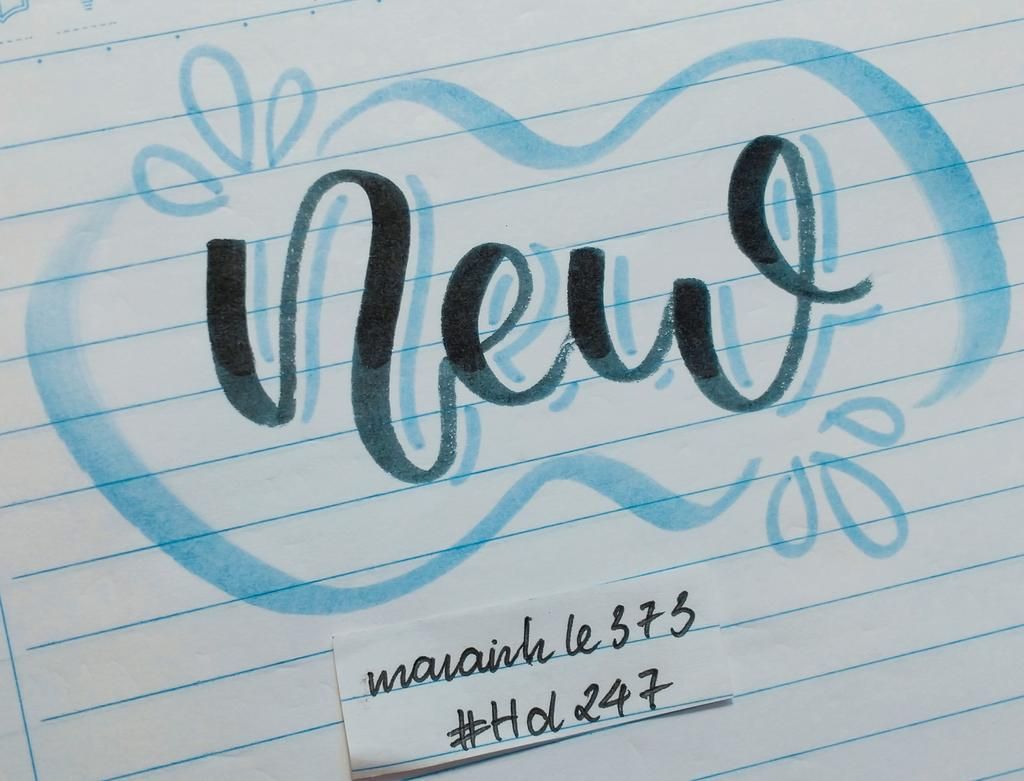 new
maiaixh le 373
#Hd 247